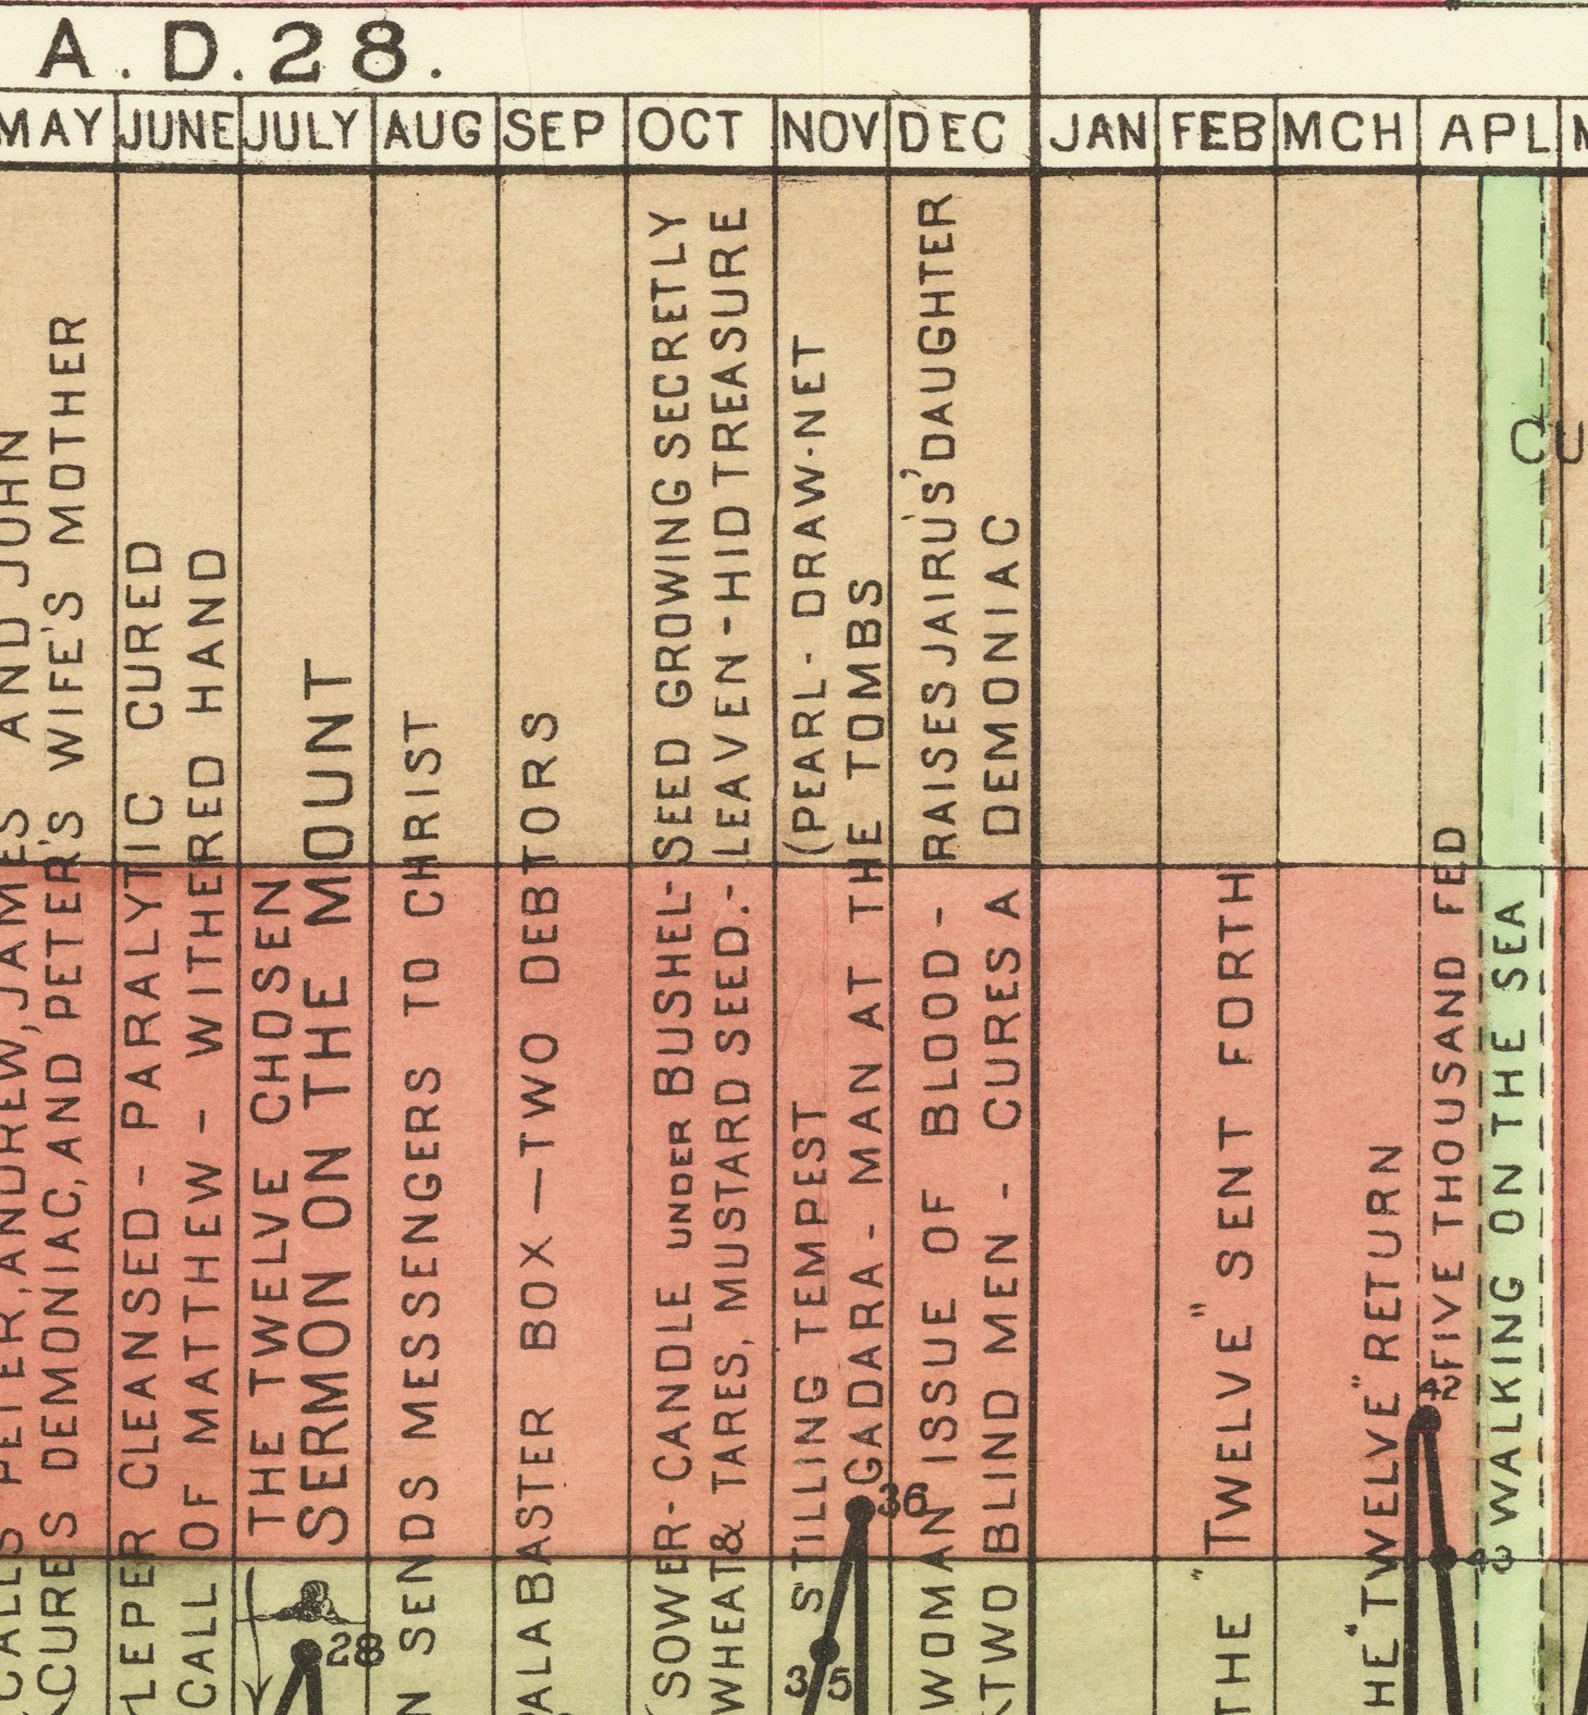 A.D.28.
MAY JUNE JULY AUG SEP OCT NOV DEC JAN FEB MCH APL
AND JOHN
CURES DEMONIAC, AND PETER'S WIFE'S MOTHER
LEPER CLEANSED - PARALYTIC CURED
CALL OF MATTHEW - WITHERED HAND
THE TWELVE CHOSEN
SERMON ON THE MOUNT
28
SENDS MESSENGERS TO CHRIST
ALABASTER BOX — TWO DEBTORS
(SOWER - CANDLE UNDER BUSHEL - SEED GROWING SECRETLY
WHEAT & TARES, MUSTARD SEED. - LEAVEN - HID TREASURE
(PEARL - DRAW-NET
STILLING TEMPEST
35
GADARA - MAN AT THE TOMBS
36
WOMAN ISSUE OF BLOOD - RAISES JAIRUS' DAUGHTER
TWO BLIND MEN - CURES A DEMONIAC
THE "TWELVE" SENT FORTH
HE "TWELVE" RETURN
42
FIVE THOUSAND FED
43
WALKING ON THE SEA
CU